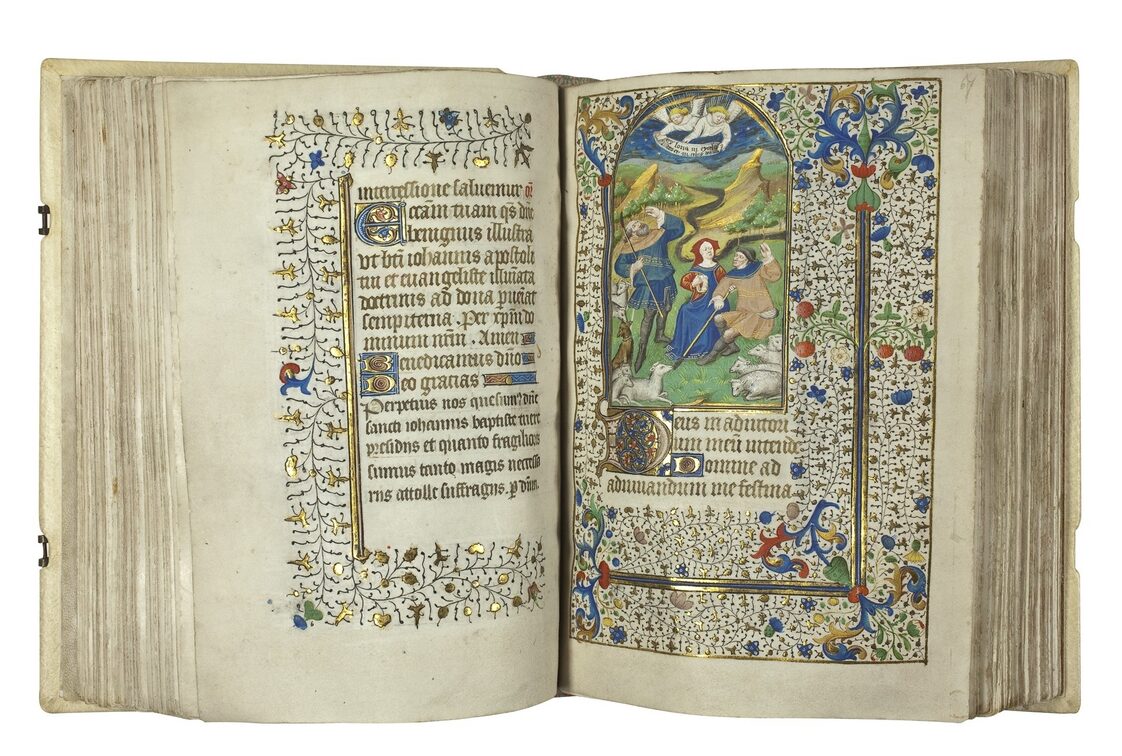 67
loria in excel
intercessione saluemur or̄
Eccãm tuam qs dñe
benignus illustra
vt bti iohannis apostoli
tui et euangeliste illuīata
doctrinis ad dona pueniat
sempiterna . Per xp̄m do
minum nr̄m . Amen
Benedicamus dn̄o
Deo gracias
Perpetuis nos quesumꝰ dn̄e
sancti iohannis baptiste tuere
presidiis et quanto fragiliores
sumus tanto magis necessa
riis attolle suffragiis . p dn̄m.
Deus in adiutori
um meū intende
Domine ad
adiuuandum me festina